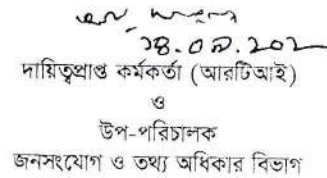 দায়িত্বপ্রাপ্ত কর্মকর্তা (আরটিআই)
ও
উপ-পরিচালক
জনসংযোগ ও তথ্য অধিকার বিভাগ